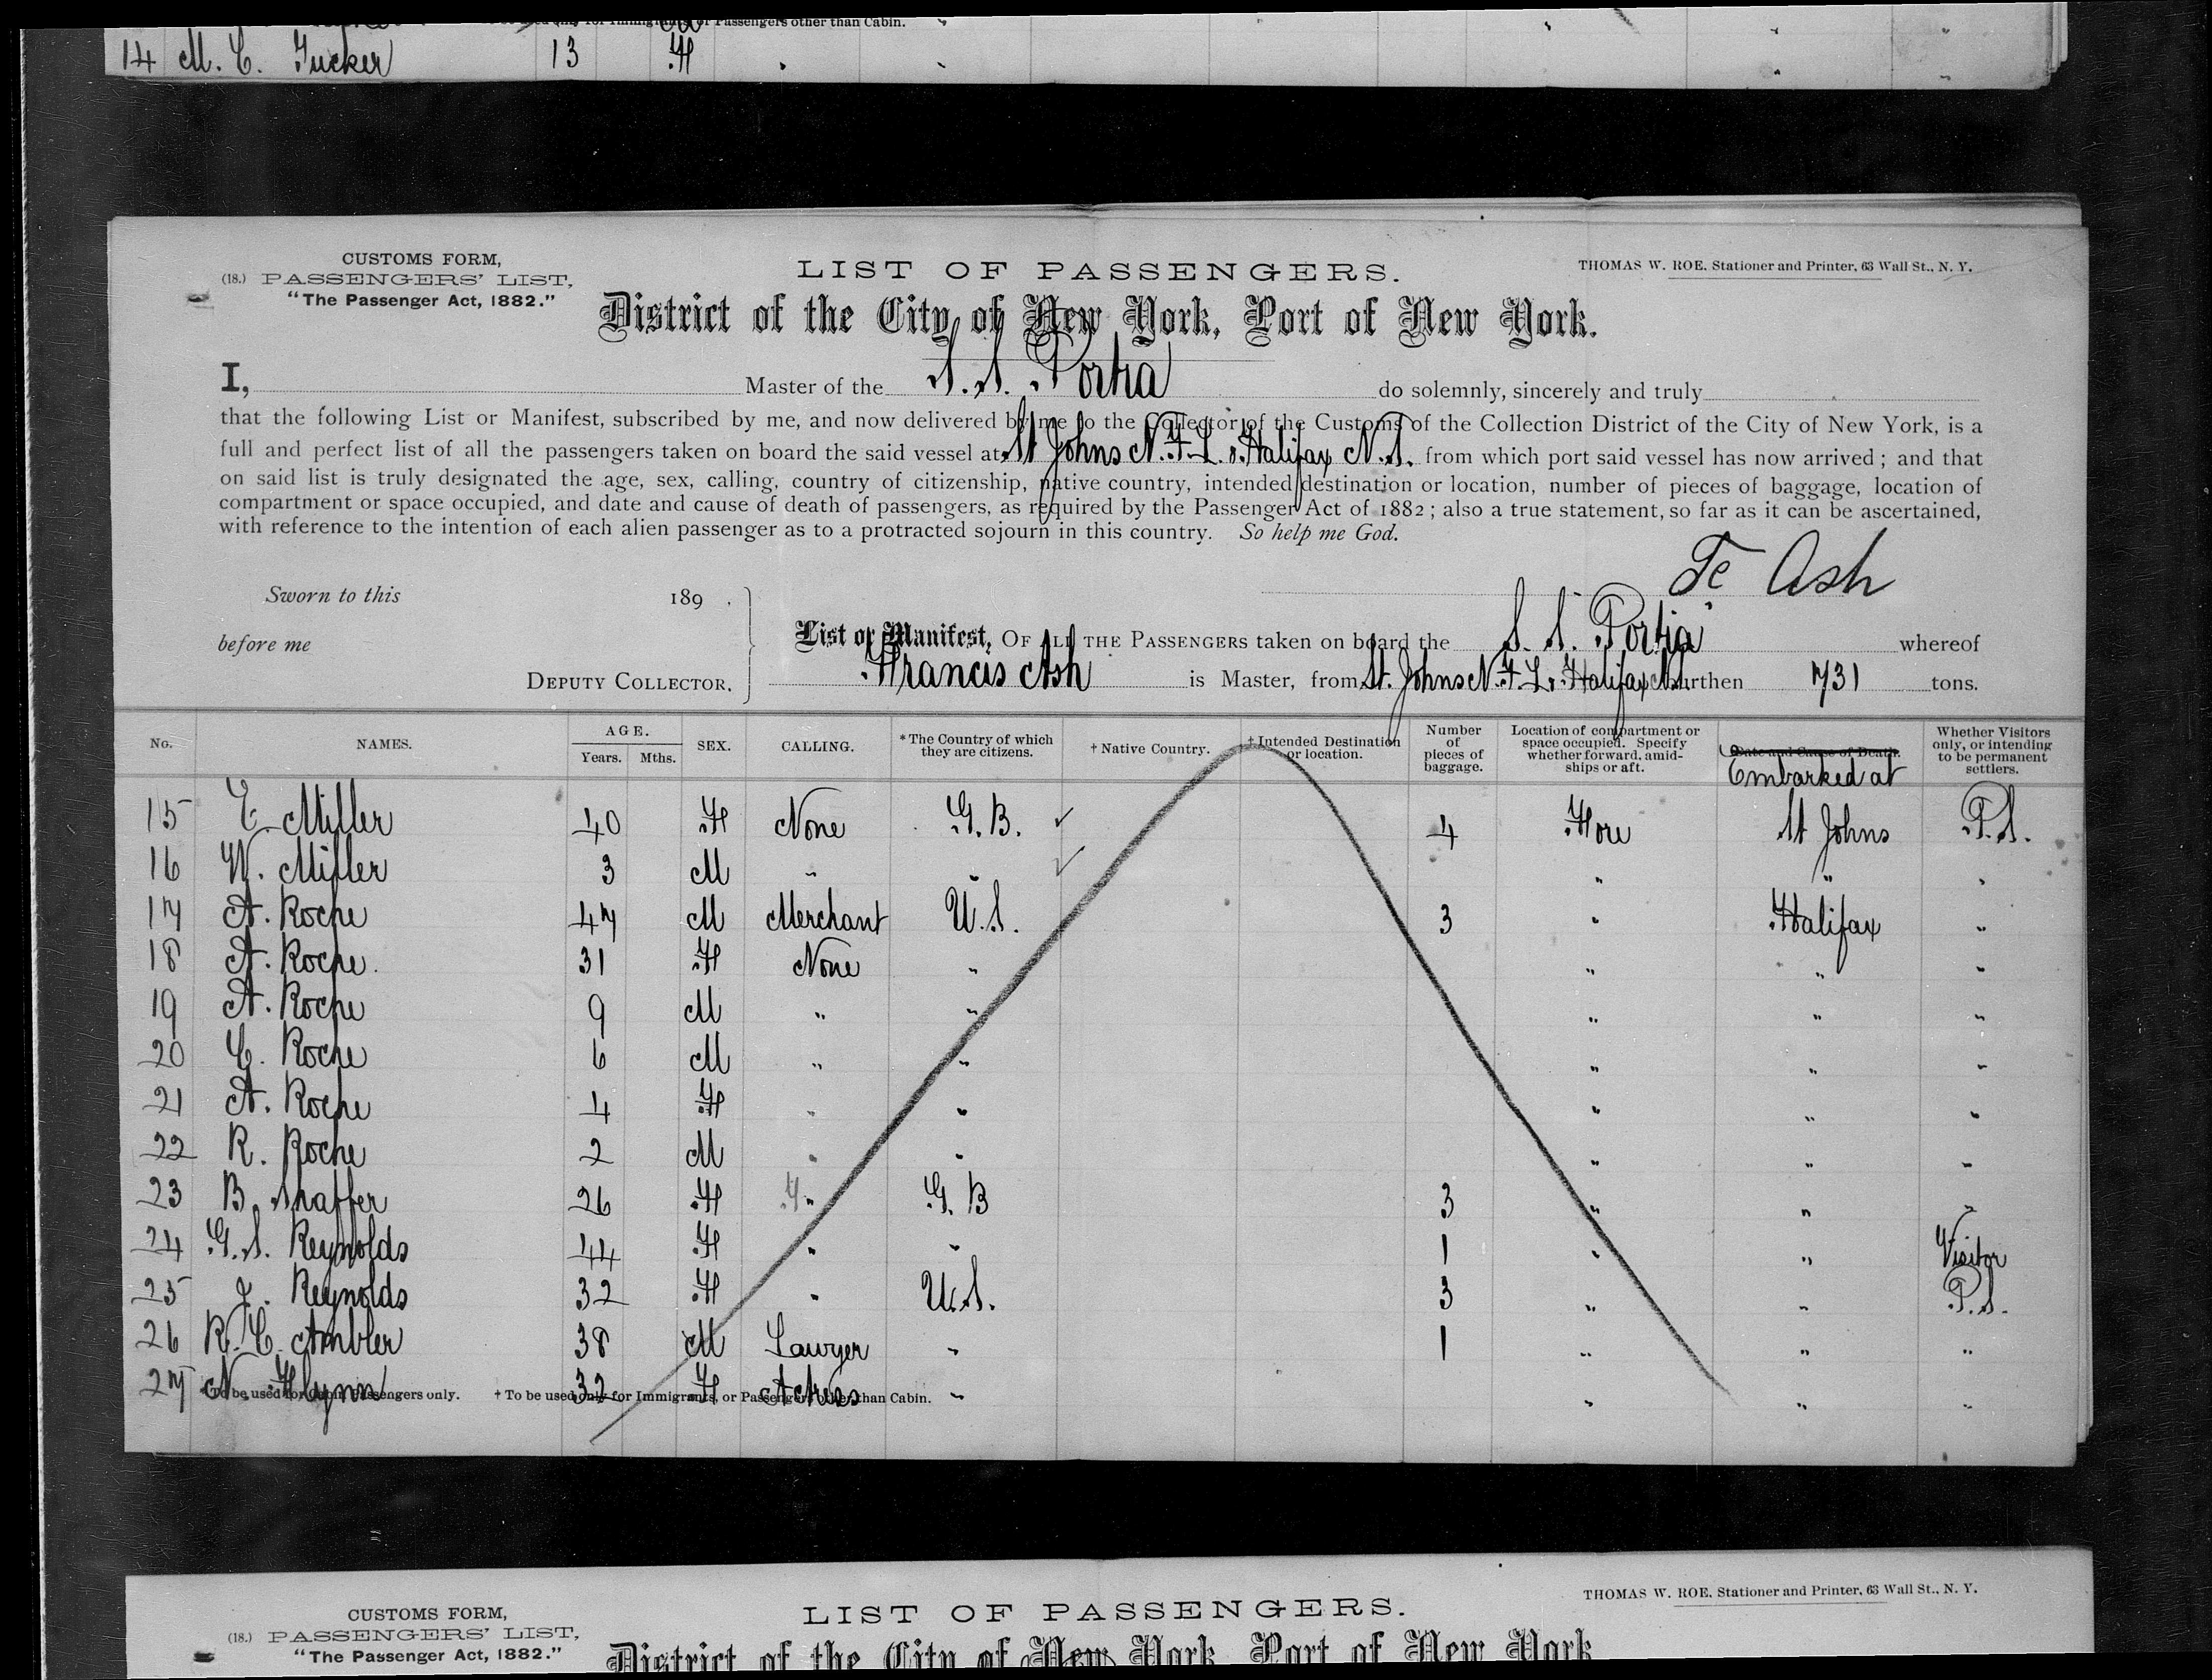 or Passengers other than Cabin.
14 M. C. Tucker 13 F " "
CUSTOMS FORM,
(18.) PASSENGERS' LIST,
"The Passenger Act, 1882."
LIST OF PASSENGERS.
THOMAS W. ROE, Stationer and Printer, 63 Wall St., N. Y.
District of the City of New York, Port of New York.
I, Master of the S. S. Portia do solemnly, sincerely and truly
that the following List or Manifest, subscribed by me, and now delivered by me to the Collector of the Customs of the Collection District of the City of New York, is a
full and perfect list of all the passengers taken on board the said vessel at St Johns N.F.L. & Halifax N.S. from which port said vessel has now arrived; and that
on said list is truly designated the age, sex, calling, country of citizenship, native country, intended destination or location, number of pieces of baggage, location of
compartment or space occupied, and date and cause of death of passengers, as required by the Passenger Act of 1882; also a true statement, so far as it can be ascertained,
with reference to the intention of each alien passenger as to a protracted sojourn in this country. So help me God.
Ash
Sworn to this 189 .
before me
DEPUTY COLLECTOR.
List or Manifest, OF ALL THE PASSENGERS taken on board the S. S. Portia whereof
Francis Ash is Master, from St. Johns N.F.L. & Halifax N.S. burthen 731 tons.
No. NAMES. AGE. Years. Mths. SEX. CALLING. *The Country of which they are citizens. †Native Country. †Intended Destination or location. Number of pieces of baggage. Location of compartment or space occupied. Specify whether forward, amidships or aft. Date and Cause of Death. Embarked at Whether Visitors only, or intending to be permanent settlers.
15 E. Miller 40 F None G. B. ✓ 4 Fore St Johns P.S.
16 W. Miller 3 M " " ✓ " " "
17 A. Roche 47 M Merchant U.S. 3 " Halifax "
18 A. Roche 31 F None " " " "
19 A. Roche 9 M " " " " "
20 C. Roche 6 M " " " " "
21 A. Roche 4 F " " " " "
22 R. Roche 2 M " " " " "
23 B. Shaffer 26 F " G. B 3 " " "
24 G. S. Reynolds 44 F " " 1 " " Visitor
25 J. Reynolds 32 F " U.S. 3 " " P.S.
26 R. C. Ambler 38 M Lawyer " 1 " " "
27 N. Flynn 32 F Actress " " " "
*To be used for Cabin Passengers only. †To be used only for Immigrants, or Passengers other than Cabin.
CUSTOMS FORM,
(18.) PASSENGERS' LIST,
"The Passenger Act, 1882."
LIST OF PASSENGERS.
THOMAS W. ROE, Stationer and Printer, 63 Wall St., N. Y.
District of the City of New York, Port of New York